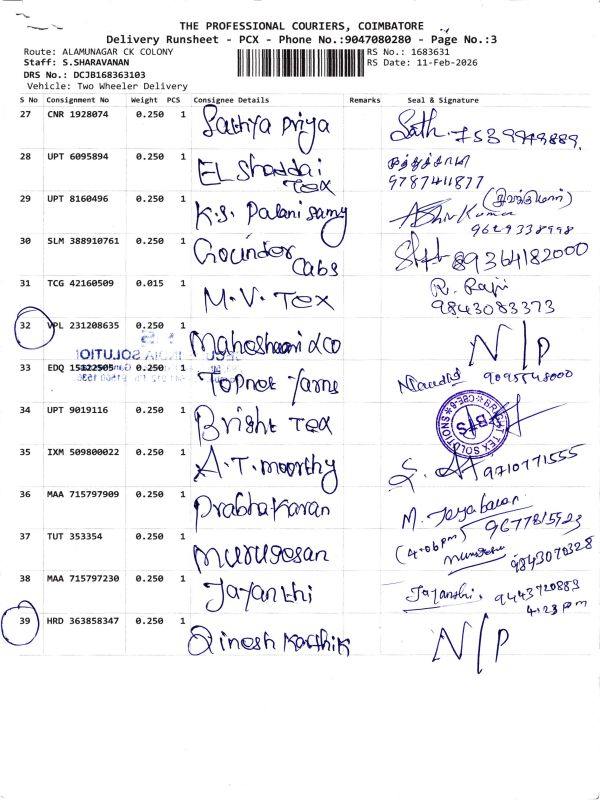 THE PROFESSIONAL COURIERS, COIMBATORE
Delivery Runsheet - PCX - Phone No.:9047080280 - Page No.:3
Route: ALAMUNAGAR CK COLONY
RS No.: 1683631
Staff: S.SHARAVANAN
RS Date: 11-Feb-2026
DRS No.: DCJB168363103
Vehicle: Two Wheeler Delivery
S No Consignment No Weight PCS Consignee Details Remarks Seal & Signature
27 CNR 1928074 0.250 1 Sathya Priya Sath.
28 UPT 6095894 0.250 1 EL Shaddai Tex
9787411877
29 UPT 8160496 0.250 1 K.S. Palani samy Ashiv Kumar
9629338998
30 SLM 388910761 0.250 1 Gounder Cabs 89364182000
31 TCG 42160509 0.015 1 M.V. Tex R. Raji
9843083373
32 VPL 231208635 0.250 1 Maheshwari & co N/P
33 EDQ 0.250 1 Topnet Yarns
34 UPT 9019116 0.250 1 Bright Tex
BRIGHT TEX SOLUTIONS CBE-9 BTS
35 IXM 509800022 0.250 1 A.T. moorthy 9710771555
36 MAA 715797909 0.250 1 Prabhakaran M. Jayabaran
37 TUT 353354 0.250 1 Murugesan (4.06pm)
9843070328
38 MAA 715797230 0.250 1 Jayanthi Jayanthi. 9443720883
4.23 pm
39 HRD 363858347 0.250 1 Dinesh Karthik N/P